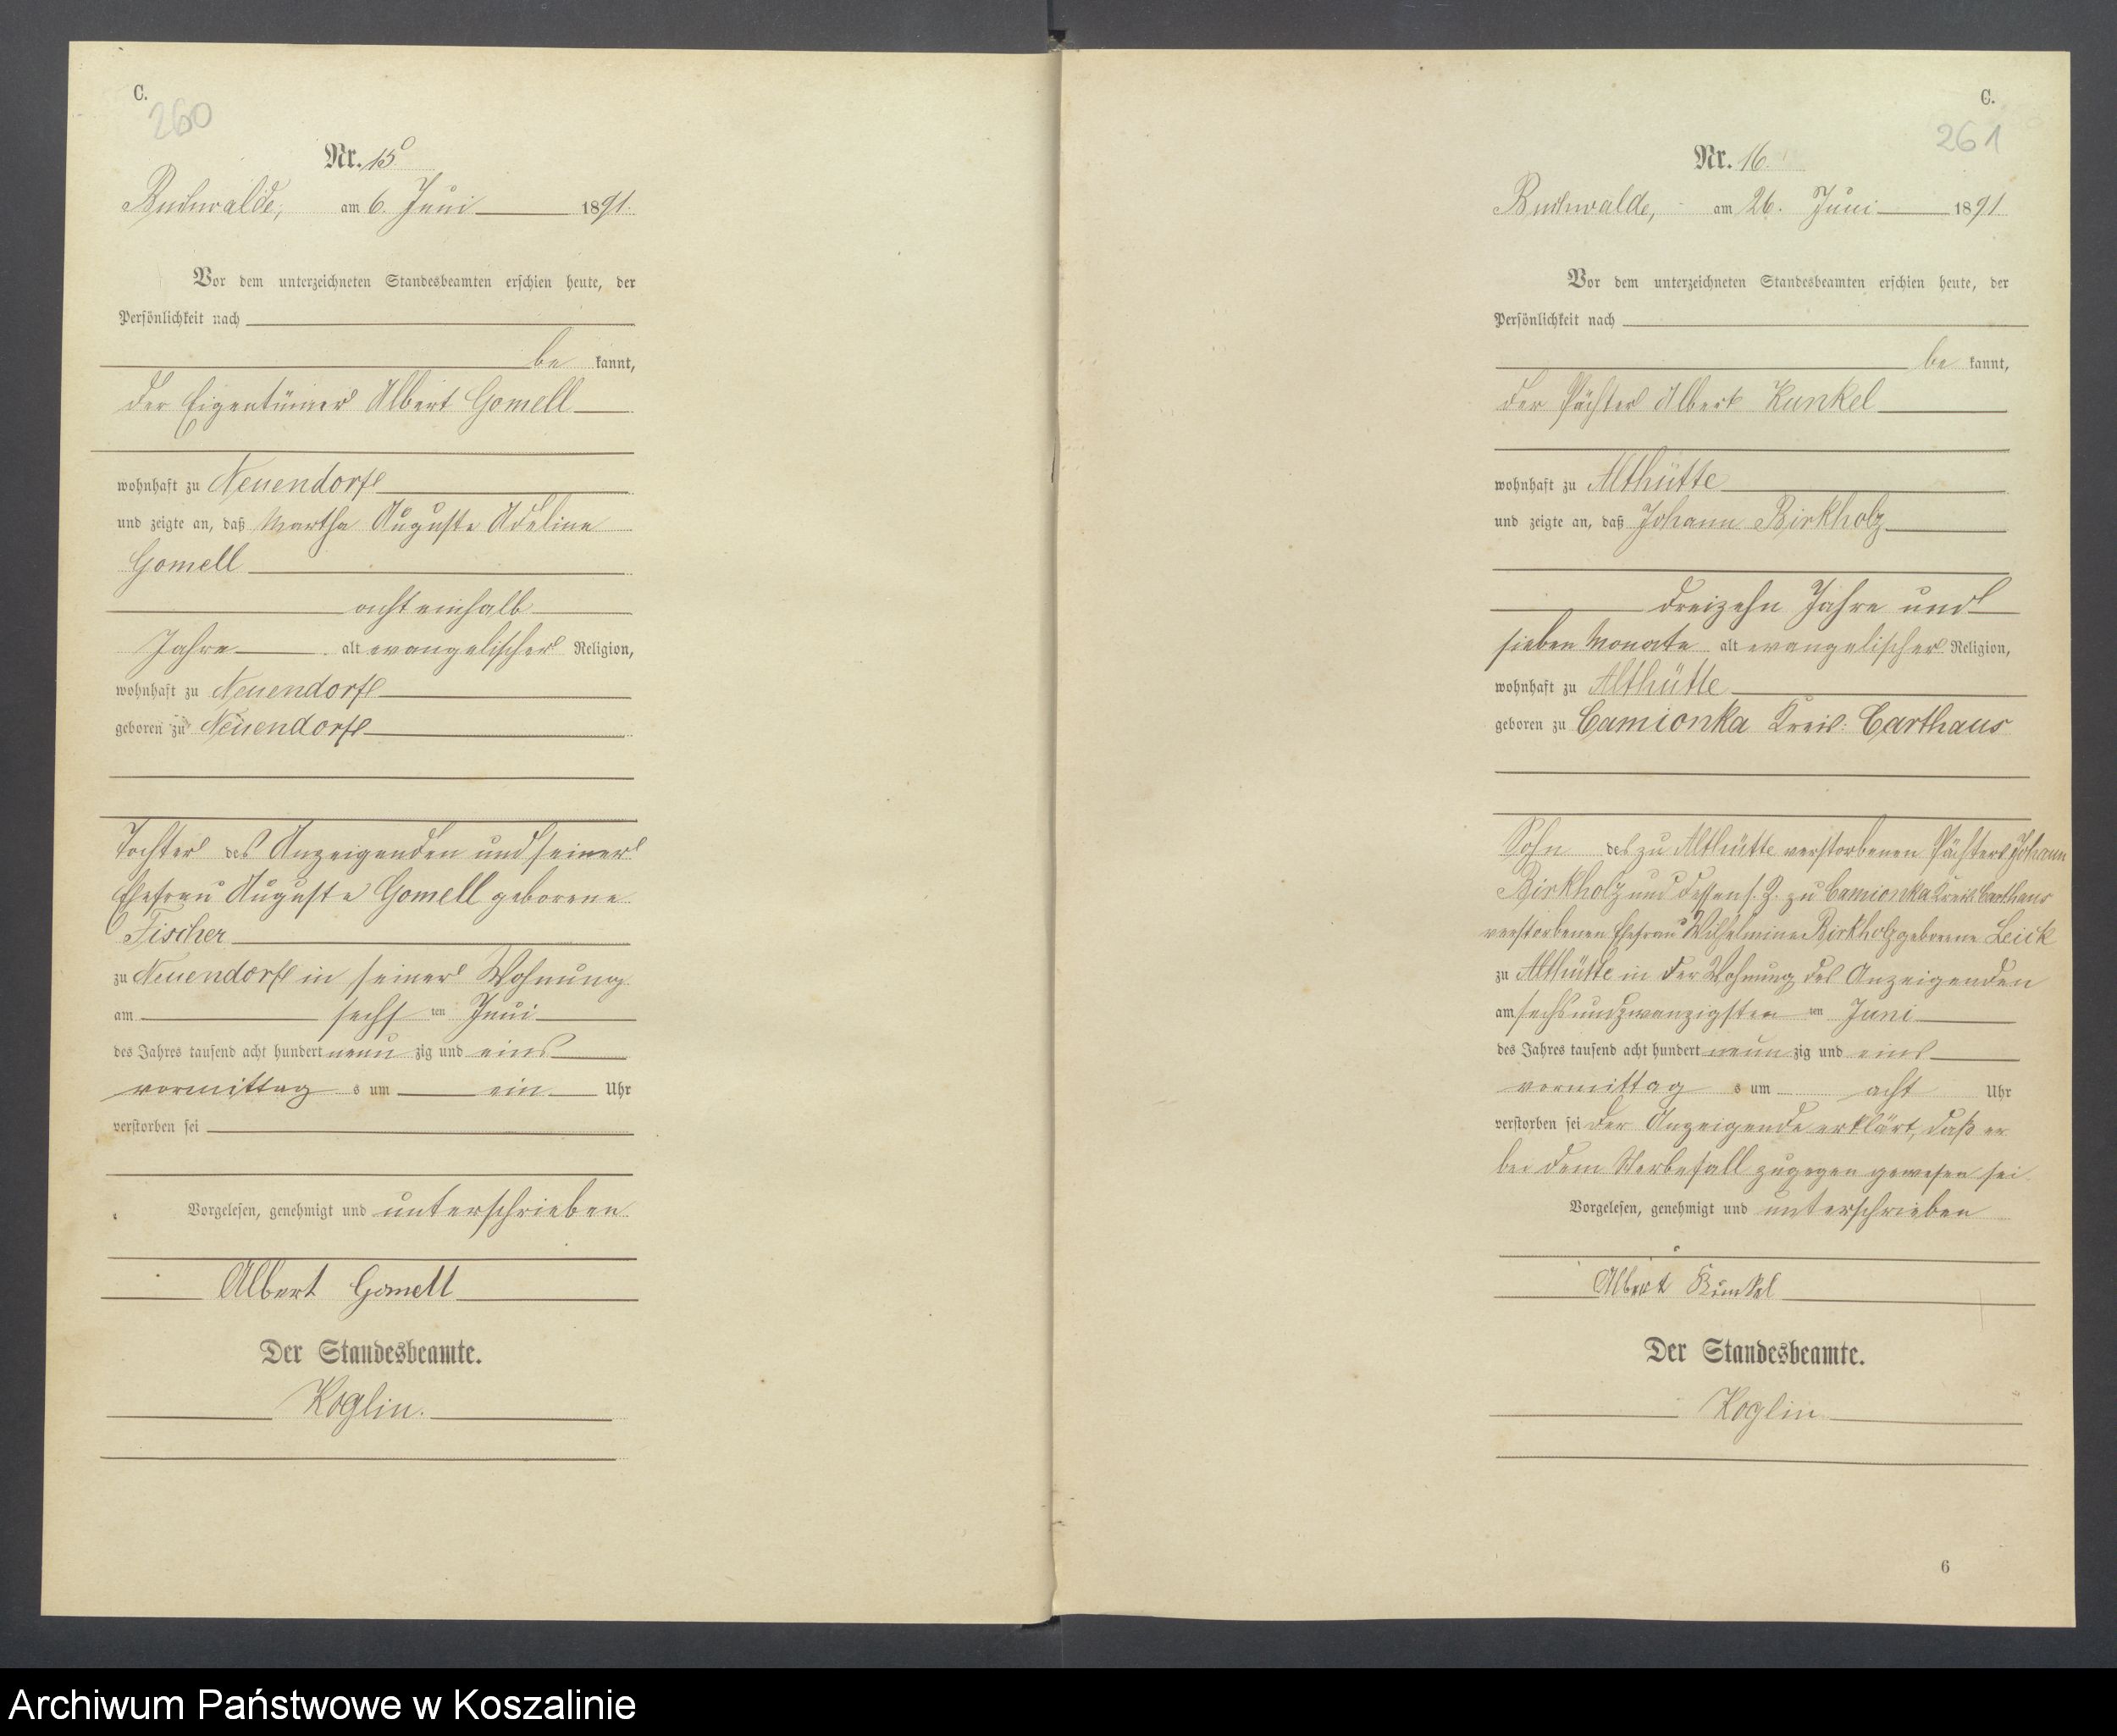 C.
260
Nr. 15
Buchwalde, am 6. Juni 1891.
Vor dem unterzeichneten Standesbeamten erschien heute, der
Persönlichkeit nach
be kannt,
der Eigentümer Albert Gomell
wohnhaft zu Neuendorf
und zeigte an, daß Martha Auguste Adeline
Gomell
achteinhalb
Jahre alt evangelischer Religion,
wohnhaft zu Neuendorf
geboren zu Neuendorf
Tochter des Anzeigenden und seiner
Ehefrau Auguste Gomell geborene
Fischer
zu Neuendorf in seiner Wohnung
am sechs ten Juni
des Jahres tausend acht hundert neun zig und eins
vormittag s um ein Uhr
verstorben sei
Vorgelesen, genehmigt und unterschrieben
Albert Gomell
Der Standesbeamte.
Koglin.
C.
261
Nr. 16.
Buchwalde, am 26. Juni 1891
Vor dem unterzeichneten Standesbeamten erschien heute, der
Persönlichkeit nach
be kannt,
der Pächter Albert Kunkel
wohnhaft zu Althütte
und zeigte an, daß Johann Birkholz
dreizehn Jahre und
sieben Monate alt evangelischer Religion,
wohnhaft zu Althütte
geboren zu Camionka Kreis: Carthaus
Sohn des zu Althütte verstorbenen Pächters Johann
Birkholz und dessen s. Z. zu Camionka Kreis Carthaus
verstorbenen Ehefrau Wilhelmine Birkholz geborene Leick
zu Althütte in der Wohnung des Anzeigenden
am sechsundzwanzigsten ten Juni
des Jahres tausend acht hundert neun zig und eins
vormittag s um acht Uhr
verstorben sei der Anzeigende erklärt, daß er
bei dem Sterbefall zugegen gewesen sei
Vorgelesen, genehmigt und unterschrieben
Albert Kunkel
Der Standesbeamte.
Koglin
6
Archiwum Państwowe w Koszalinie